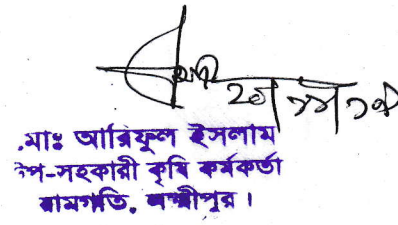 .মাঃ আরিফুল ইসলাম
উপ-সহকারী কৃষি কর্মকর্তা
রামগতি, লক্ষ্মীপুর।